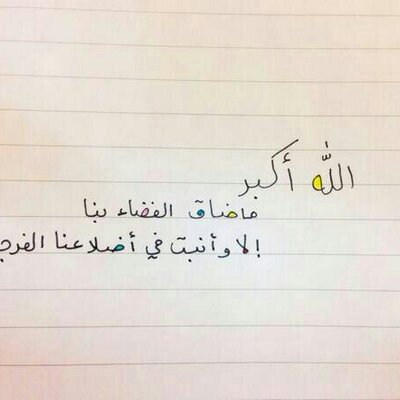 الله أكبر
ماضاق الفضاء بنا
إلا وأنبتَ في أضلاعنا الفرج